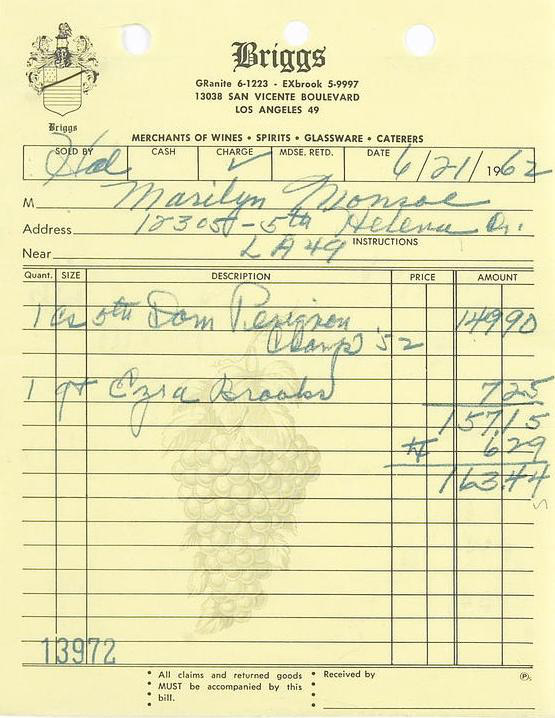 Briggs
GRanite 6-1223 - EXbrook 5-9997
13038 SAN VICENTE BOULEVARD
LOS ANGELES 49
Briggs
MERCHANTS OF WINES • SPIRITS • GLASSWARE • CATERERS
SOLD BY CASH CHARGE MDSE. RETD. DATE
Hal ✓ 6/21/1962
M Marilyn Monroe
Address 12305-5th Helena Dr.
Near LA 49 INSTRUCTIONS
Quant. SIZE DESCRIPTION PRICE AMOUNT
1 cs 5th Dom Perignon 149 90
Champ '52
1 qt Ezra Brooks 7 25
157.15
tx 6 29
163.44
13972
All claims and returned goods
MUST be accompanied by this
bill.
Received by